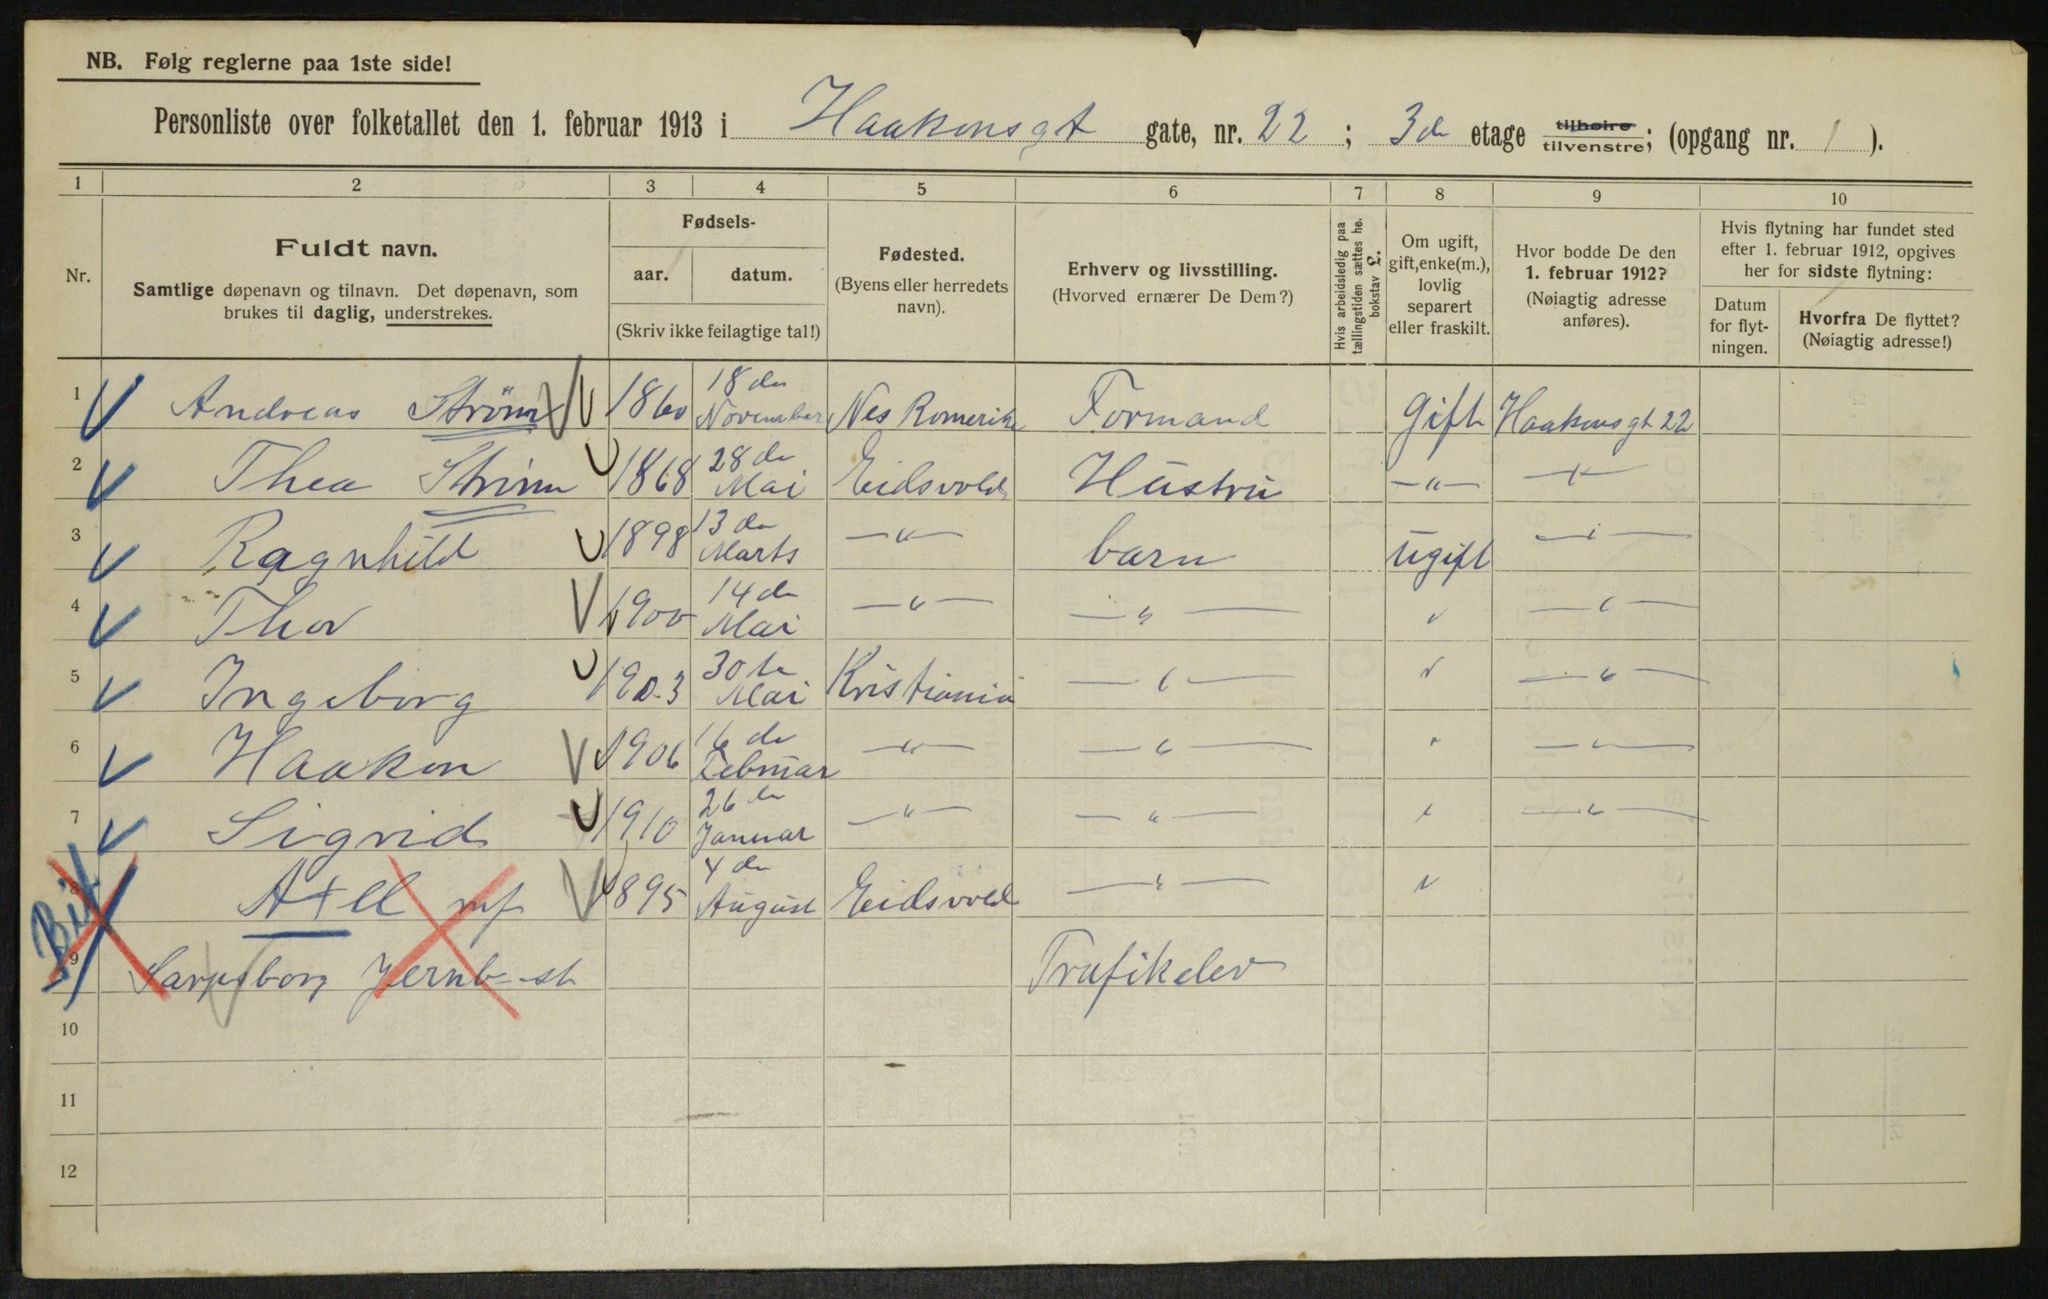 NB. Følg reglerne paa 1ste side!
Personliste over folketallet den 1. februar 1913 i Haakonsgt gate, nr. 22 ; 3de etage tilhøire tilvenstre; (opgang nr. 1 ).
1 2 3 4 5 6 7 8 9 10
Nr.
Fuldt navn.
Samtlige døpenavn og tilnavn. Det døpenavn, som
brukes til daglig, understrekes.
Fødsels-
aar. datum.
(Skriv ikke feilagtige tal!)
Fødested.
(Byens eller herredets
navn).
Erhverv og livsstilling.
(Hvorved ernærer De Dem?)
Hvis arbeidsledig paa
tællingstiden sættes her
bokstav L.
Om ugift,
gift, enke(m.),
lovlig
separert
eller fraskilt.
Hvor bodde De den
1. februar 1912?
(Nøiagtig adresse
anføres).
Hvis flytning har fundet sted
efter 1. februar 1912, opgives
her for sidste flytning:
Datum
for flyt-
ningen.
Hvorfra De flyttet?
(Nøiagtig adresse!)
1 Andreas Ström 1860 18de November Nes Romerike Formand Gift Haakonsgt 22
2 Thea Ström 1868 28de Mai Eidsvold Hustru —"— —"—
3 Ragnhild 1898 13de Marts —"— barn Ugift —"—
4 Thor 1900 14de Mai —"— —"— " —"—
5 Ingeborg 1903 30te Mai Kristiania —"— " —"—
6 Haakon 1906 16de Februar —"— —"— " —"—
7 Sigrid 1910 26de Januar —"— —"— " —"—
8 Axel 1895 4de August Eidsvold —"— "
9 Sarpsborg Jernb-st Trafikelev
10
11
12